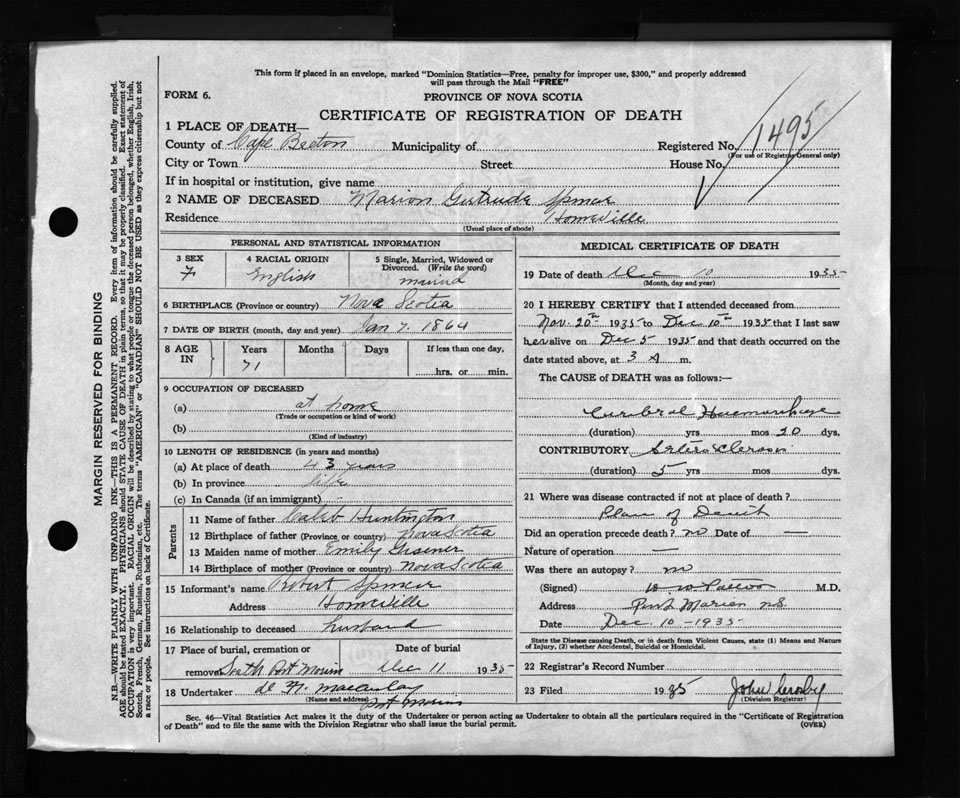 This form if placed in an envelope, marked "Dominion Statistics—Free, penalty for improper use, $300," and properly addressed
will pass through the Mail "FREE"
FORM 6.
PROVINCE OF NOVA SCOTIA
CERTIFICATE OF REGISTRATION OF DEATH
1 PLACE OF DEATH—
County of Cape Breton Municipality of Registered No. 1495
(For use of Registrar General only)
City or Town Street House No.
If in hospital or institution, give name
2 NAME OF DECEASED Marion Gertrude Spencer
Residence Homeville
(Usual place of abode)
PERSONAL AND STATISTICAL INFORMATION
3 SEX 4 RACIAL ORIGIN 5 Single, Married, Widowed or Divorced. (Write the word)
F English married
6 BIRTHPLACE (Province or country) Nova Scotia
7 DATE OF BIRTH (month, day and year) Jan 7. 1864
8 AGE IN Years Months Days If less than one day,
71 hrs. or min.
9 OCCUPATION OF DECEASED
(a) at home
(Trade or occupation or kind of work)
(b)
(Kind of industry)
10 LENGTH OF RESIDENCE (in years and months)
(a) At place of death 43 years
(b) In province life
(c) In Canada (if an immigrant)
Parents
11 Name of father Caleb Huntington
12 Birthplace of father (Province or country) Nova Scotia
13 Maiden name of mother Emily
14 Birthplace of mother (Province or country) Nova Scotia
15 Informant's name Robert Spencer
Address Homeville
16 Relationship to deceased husband
17 Place of burial, cremation or removal Date of burial
South Port Morien Dec 11 1935
18 Undertaker Macaulay
(Name and address) Port Morien
MEDICAL CERTIFICATE OF DEATH
19 Date of death Dec 10 1935
(Month, day and year)
20 I HEREBY CERTIFY that I attended deceased from
Nov. 20th 1935 to Dec 10th 1935 that I last saw
her alive on Dec 5 1935 and that death occurred on the
date stated above, at 3 A m.
The CAUSE of DEATH was as follows:—
Cerebral Haemorrhage
(duration) yrs mos 20 dys.
CONTRIBUTORY
(duration) 5 yrs mos dys.
21 Where was disease contracted if not at place of death?
Place of Death
Did an operation precede death? no Date of —
Nature of operation —
Was there an autopsy? no
(Signed) M.D.
Address Port Morien N.S.
Date Dec. 10-1935
State the Disease causing Death, or in death from Violent Causes, state (1) Means and Nature
of Injury, (2) whether Accidental, Suicidal or Homicidal.
22 Registrar's Record Number
23 Filed 1935 John Crosby
(Division Registrar)
Sec. 46—Vital Statistics Act makes it the duty of the Undertaker or person acting as Undertaker to obtain all the particulars required in the "Certificate of Registration
of Death" and to file the same with the Division Registrar who shall issue the burial permit. (OVER)
MARGIN RESERVED FOR BINDING
N.B.—WRITE PLAINLY WITH UNFADING INK—THIS IS A PERMANENT RECORD. Every item of information should be carefully supplied.
AGE should be stated EXACTLY. PHYSICIANS should STATE CAUSE OF DEATH in plain terms, so that it may be properly classified. Exact statement of
OCCUPATION is very important. RACIAL ORIGIN will be described by stating to what people or tongue the deceased person belonged, whether English, Irish,
Scotch, French, German, Russian, Ruthenian, etc. The terms "AMERICAN" or "CANADIAN" SHOULD NOT BE USED as they express citizenship but not
a race or people. See instructions on back of Certificate.